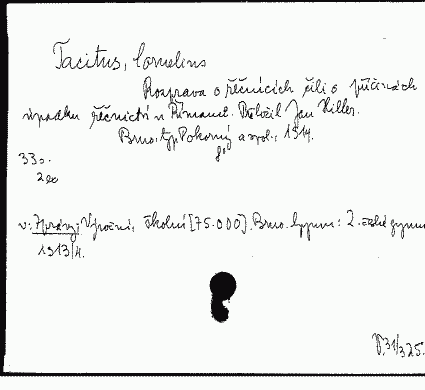 Tacitus, Cornelius
Rozprava o řečnících čili o příčinách
úpadku řečnictví u Římanů. Přeložil Jan Hiller.
Brno, Pokorný a spol., 1914.
8°
33 s.
v: Zprávy Výroční, školní [75.000]. Brno. : 2. české gymn
1913/4.